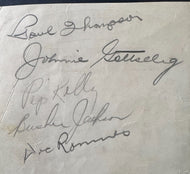 Paul Thompson
Johnnie Gottselig
Pep Kelly
Busher Jackson
Doc Romnes